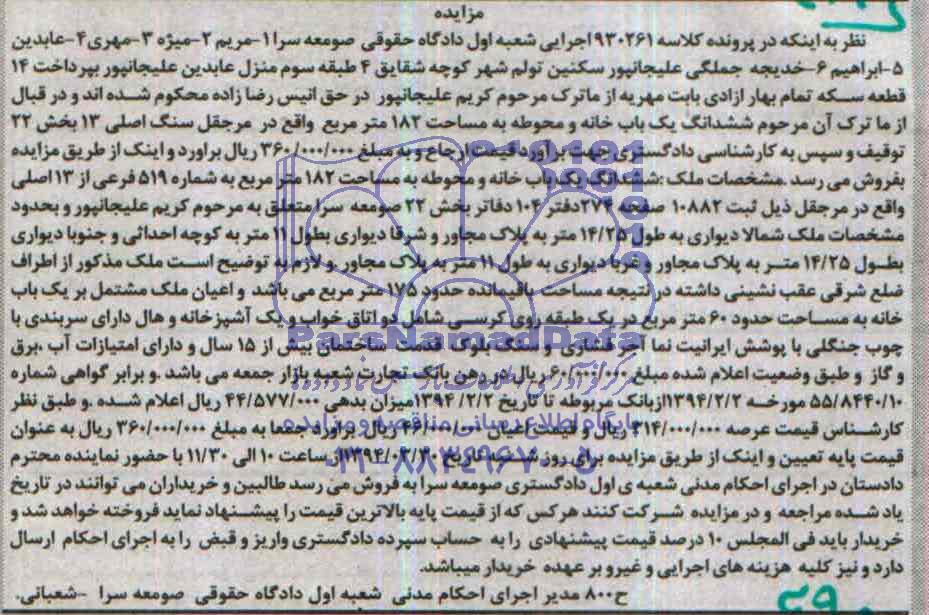 مزایده
نظر به اینکه در پرونده کلاسه ۹۳۰۲۶۱ اجرایی شعبه اول دادگاه حقوقی صومعه سرا ۱-مریم ۲-میژه ۳-مهری ۴-عابدین
۵-ابراهیم ۶-خدیجه جملگی علیجانپور سکنین تولم شهر کوچه شقایق ۴ طبقه سوم منزل عابدین علیجانپور بپرداخت ۱۴
قطعه سکه تمام بهار ازادی بابت مهریه از ماترک مرحوم کریم علیجانپور در حق انیس رضا زاده محکوم شده اند و در قبال
از ما ترک آن مرحوم ششدانگ یک باب خانه و محوطه به مساحت ۱۸۲ متر مربع واقع در مرجقل سنگ اصلی ۱۳ بخش ۲۲
توقیف و سپس به کارشناسی دادگستری جهت برآورد قیمت ارجاع و به مبلغ ۳۶۰/۰۰۰/۰۰۰ ریال براورد و اینک از طریق مزایده
بفروش می رسد .مشخصات ملک :ششدانگ یک باب خانه و محوطه به مساحت ۱۸۲ متر مربع به شماره ۵۱۹ فرعی از ۱۳ اصلی
واقع در مرجقل ذیل ثبت ۱۰۸۸۲ صفحه ۲۷۴ دفتر ۱۰۴ دفاتر بخش ۲۲ صومعه سرا متعلق به مرحوم کریم علیجانپور و بحدود
مشخصات ملک شمالا دیواری به طول ۱۴/۲۵ متر به پلاک مجاور و شرقا دیواری بطول ۱۱ متر به کوچه احداثی و جنوبا دیواری
بطول ۱۴/۲۵ متر به پلاک مجاور و غربا دیواری به طول ۱۱ متر به پلاک مجاور .و لازم به توضیح است ملک مذکور از اطراف
ضلع شرقی عقب نشینی داشته در نتیجه مساحت باقیمانده حدود ۱۷۵ متر مربع می باشد و اعیان ملک مشتمل بر یک باب
خانه به مساحت حدود ۶۰ متر مربع در یک طبقه روی کرسی شامل دو اتاق خواب و یک آشپزخانه و هال دارای سربندی با
چوب جنگلی با پوشش ایرانیت نما آجر فشاری و سنگ بلوک قدمت ساختمان بیش از ۱۵ سال و دارای امتیازات آب ،برق
و گاز و طبق وضعیت اعلام شده مبلغ ۶۰/۰۰۰/۰۰۰ ریال در رهن بانک تجارت شعبه بازار جمعه می باشد .و برابر گواهی شماره
۵۵/۸۴۴۰/۱۰ مورخه ۱۳۹۴/۲/۲ ازبانک مربوطه تا تاریخ ۱۳۹۴/۲/۲ میزان بدهی ۴۴/۵۷۷/۰۰۰ ریال اعلام شده .و طبق نظر
کارشناس قیمت عرصه ۳۱۴/۰۰۰/۰۰۰ ریال و قیمت اعیان ۴۶/۰۰۰/۰۰۰ ریال براورد جمعا به مبلغ ۳۶۰/۰۰۰/۰۰۰ ریال به عنوان
قیمت پایه تعیین و اینک از طریق مزایده برای روز شنبه تاریخ ۱۳۹۴/۰۳/۳۰ از ساعت ۱۰ الی ۱۱/۳۰ با حضور نماینده محترم
دادستان در اجرای احکام مدنی شعبه ی اول دادگستری صومعه سرا به فروش می رسد طالبین و خریداران می توانند در تاریخ
یاد شده مراجعه و در مزایده شرکت کنند هرکس که از قیمت پایه بالاترین قیمت را پیشنهاد نماید فروخته خواهد شد و
خریدار باید فی المجلس ۱۰ درصد قیمت پیشنهادی را به حساب سپرده دادگستری واریز و قبض را به اجرای احکام ارسال
دارد و نیز کلیه هزینه های اجرایی و غیرو بر عهده خریدار میباشد.
ح۸۰۰ مدیر اجرای احکام مدنی شعبه اول دادگاه حقوقی صومعه سرا -شعبانی.
ParsNamadData
پایگاه اطلاع رسانی مناقصه و مزایده
۰۲۱-۸۸۳۴۹۶۷۰-۵
۳۹